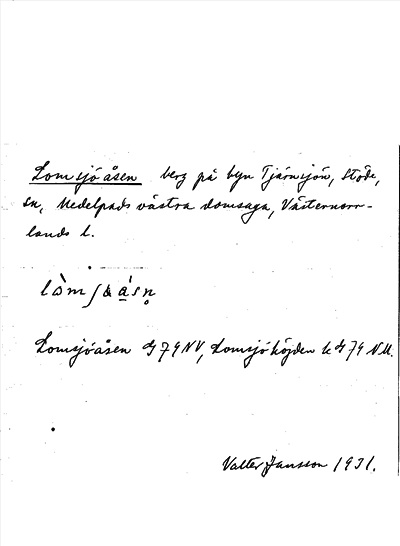 Lomsjöåsen berg på byn Tjärnsjön, Stöde,
sn, Medelpads västra domsaga, Västernorr-
lands l.
Lomsjöåsen G 79 NV, Lomsjöhöjden k G 79 NV.
Valter Jansson 1931.